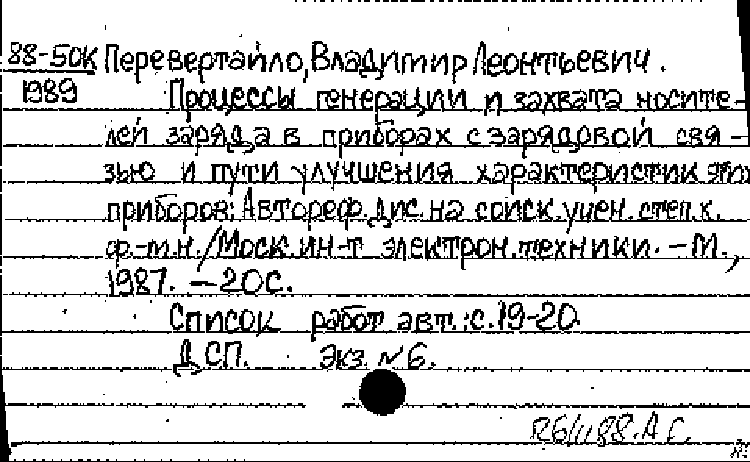 88-50К Перевертайло, Владимир Леонтьевич.
1989 Процессы генерации и захвата носите-
лей заряда в приборах с зарядовой свя-
зью и пути улучшения характеристик этих
приборов: Автореф. дис. на соиск. учен. степ. к.
ф.-т.н. / Моск. ин-т электрон. техники. - М.,
1987. - 20 с.
Список работ авт.: с. 19-20.
ДСП. Экз. №6.